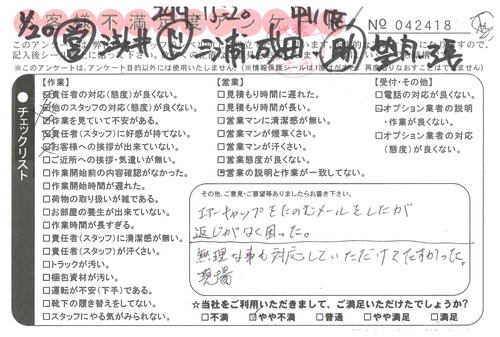 お客様不満足度アンケート
No 042418
【作業】
責任者の対応（態度）が良くない。
他のスタッフの対応（態度）が良くない。
作業を見ていて不安がある。
責任者（スタッフ）に好感が持てない。
お客様への挨拶が出来ていない。
ご近所への挨拶・気遣いが無い。
作業開始前の内容確認がなかった。
作業開始時間が遅れた。
荷物の取り扱いが雑である。
お部屋の養生が出来ていない。
作業時間が長すぎる。
責任者（スタッフ）に清潔感が無い。
責任者（スタッフ）が汗くさい。
トラックが汚い。
梱包資材が汚い。
運転が不安（下手）である。
靴下の履き替えをしてない。
スタッフにやる気がみられない。
【営業】
見積もり時間に遅れた。
見積もり時間が長い。
営業マンに清潔感が無い。
営業マンが煙草くさい。
営業マンが汗くさい。
営業態度が良くない。
営業の説明と作業が一致してない。
【受付・その他】
電話の対応が良くない。
オプション業者の説明
・作業が良くない。
オプション業者の対応
（態度）が良くない。
チェックリスト
その他、ご意見・ご要望等ありましたらお書き下さい。
エアーキャップをたのむメールをしたが
返じがなく困った。
無理な事も対応していただけてたすかった。
現場
☆当社をご利用いただきまして、ご満足いただけたでしょうか？
不満 やや不満 普通 やや満足 満足